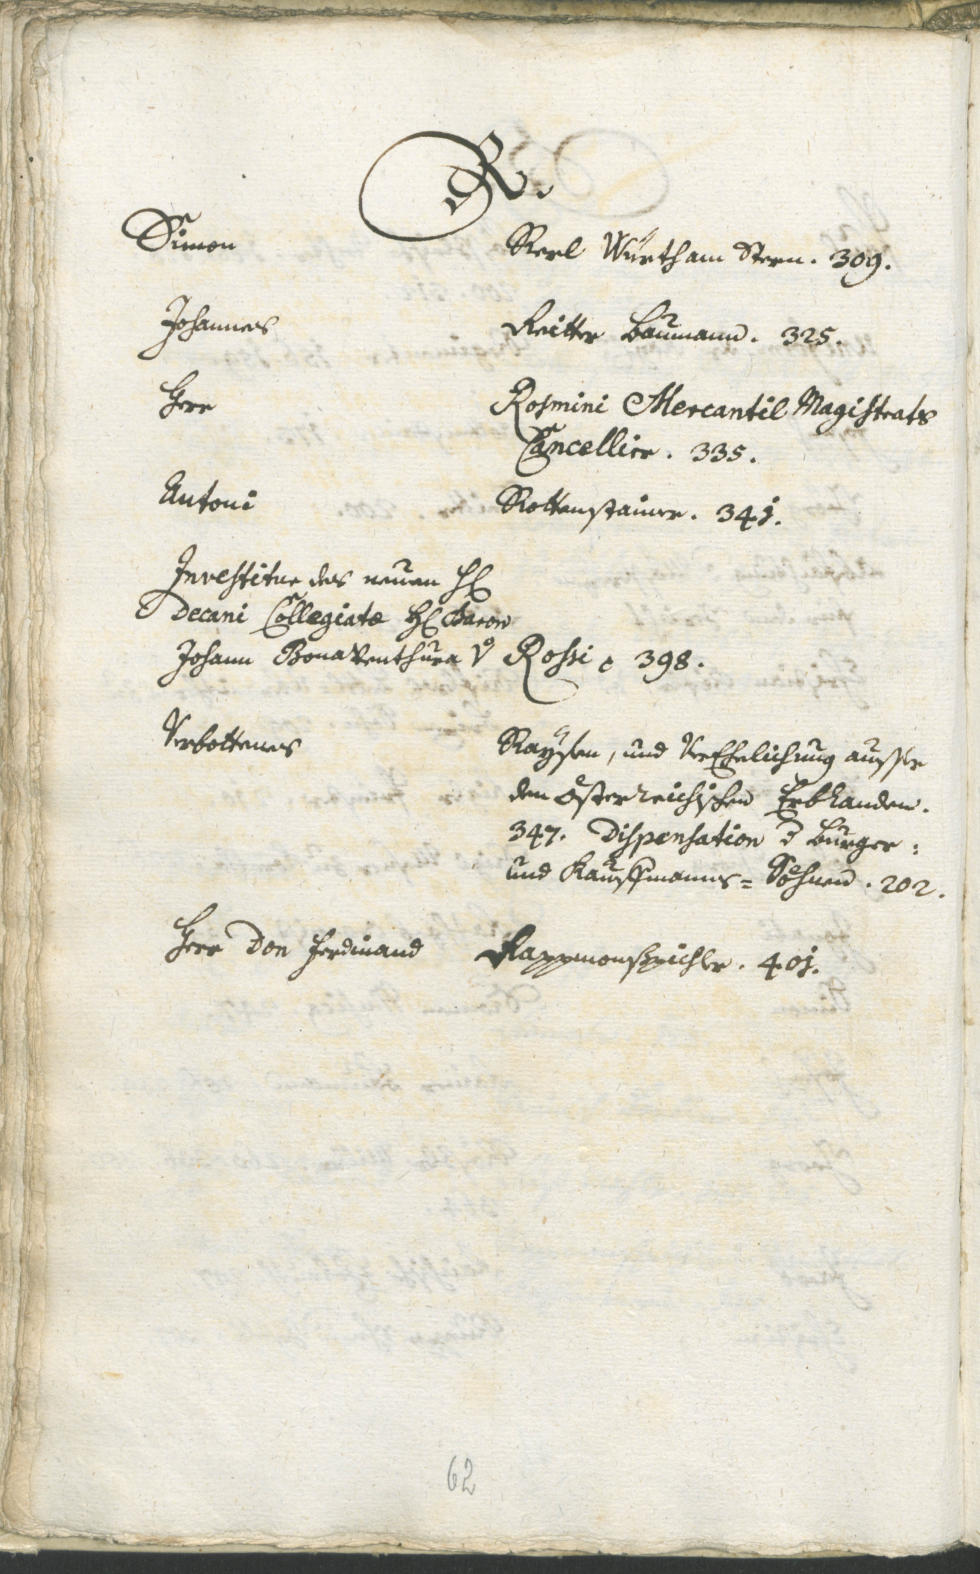 R.
Simon Kerl Würth am Stern. 309.
Johannes Reitter Baumann. 325.
Herr Rosmini Mercantil Magistrats
Cancellier. 335.
Antoni Rottenstainer. 341.
Investitur des neuen H
Decani Collegiatæ H Baron
Johann Bonaventhura v Rossi 398.
Verbottenes Raysen, und Verehelichung ausser
den österreichischen Erblanden.
347. Dispensation d Burger:
und Kauffmanns= Söhnen. 202.
Herr Don Ferdinand Rappmonspichler. 401.
62